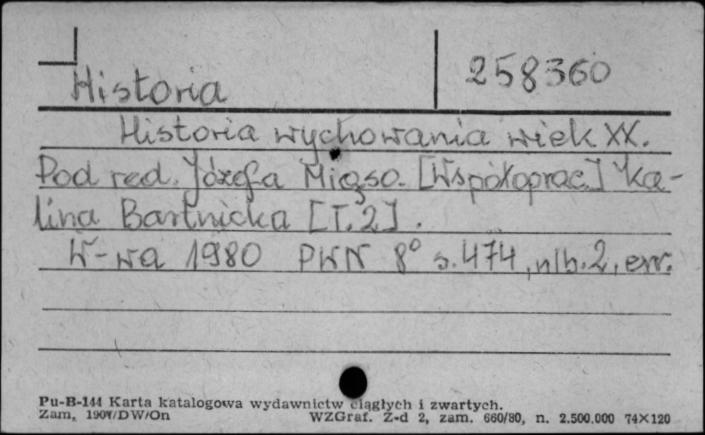 Historia 258360
Historia wychowania wiek XX.
Pod red. Józefa Miąso. [Współoprac.] Ka-
lina Bartnicka [T.2].
W-wa 1980 PWN 8° s. 474, nlb. 2, err.
Pu-B-144 Karta katalogowa wydawnictw ciągłych i zwartych.
Zam. 190W/DW/On WZGraf. Z-d 2, zam. 660/80, n. 2.500.000 74X120